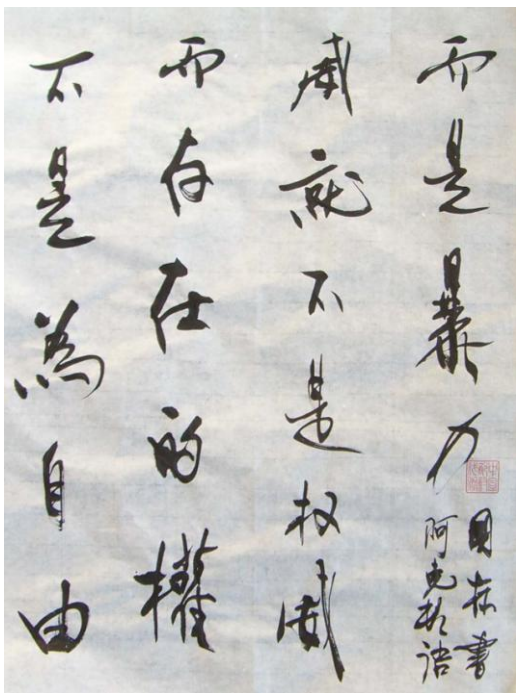 不是為自由
而存在的權
威就不是权威
而是暴力
阿克顿语